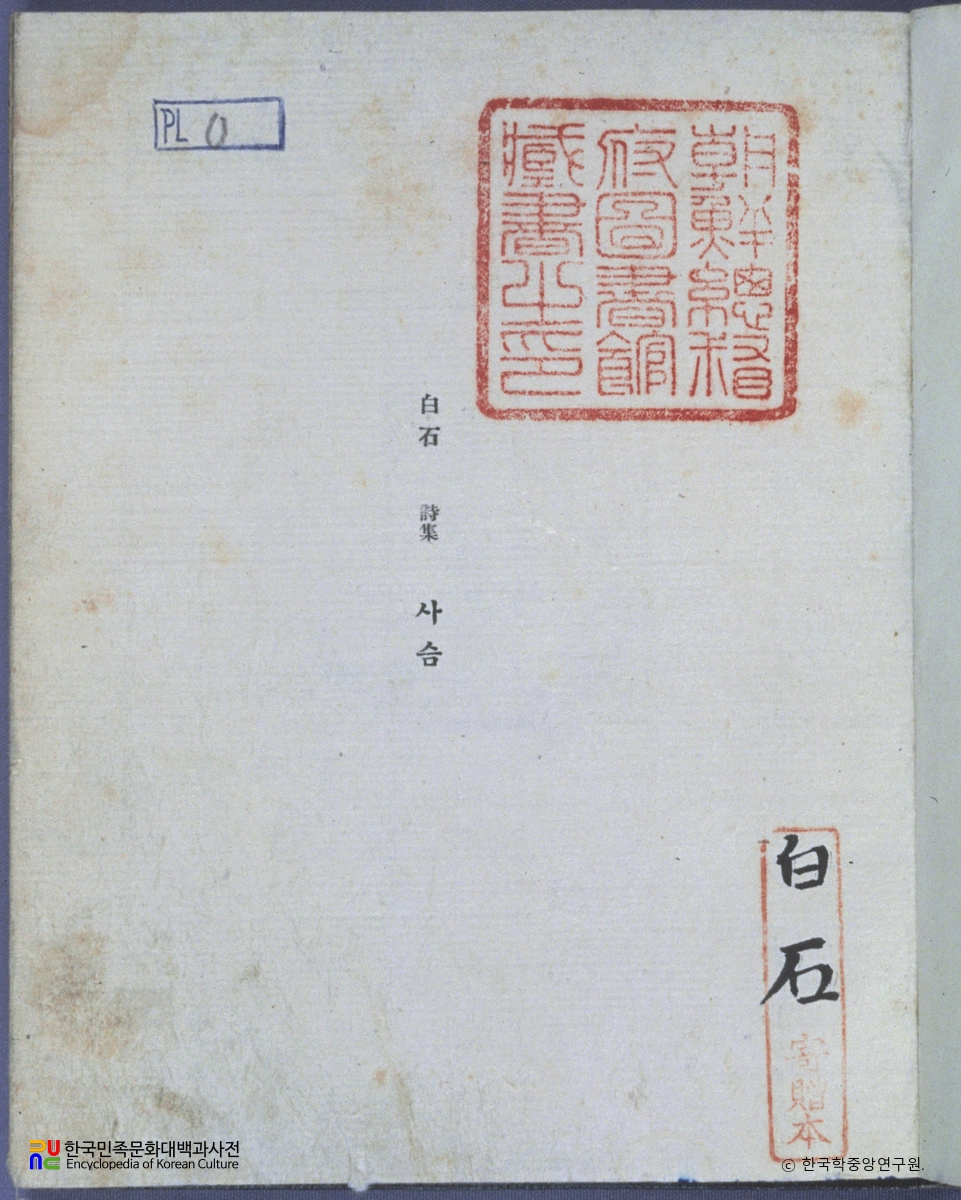 PL 0
朝鮮總督
府圖書館
藏書之印
白石 詩集 사슴
白石
寄贈本
한국민족문화대백과사전
Encyclopedia of Korean Culture
© 한국학중앙연구원.